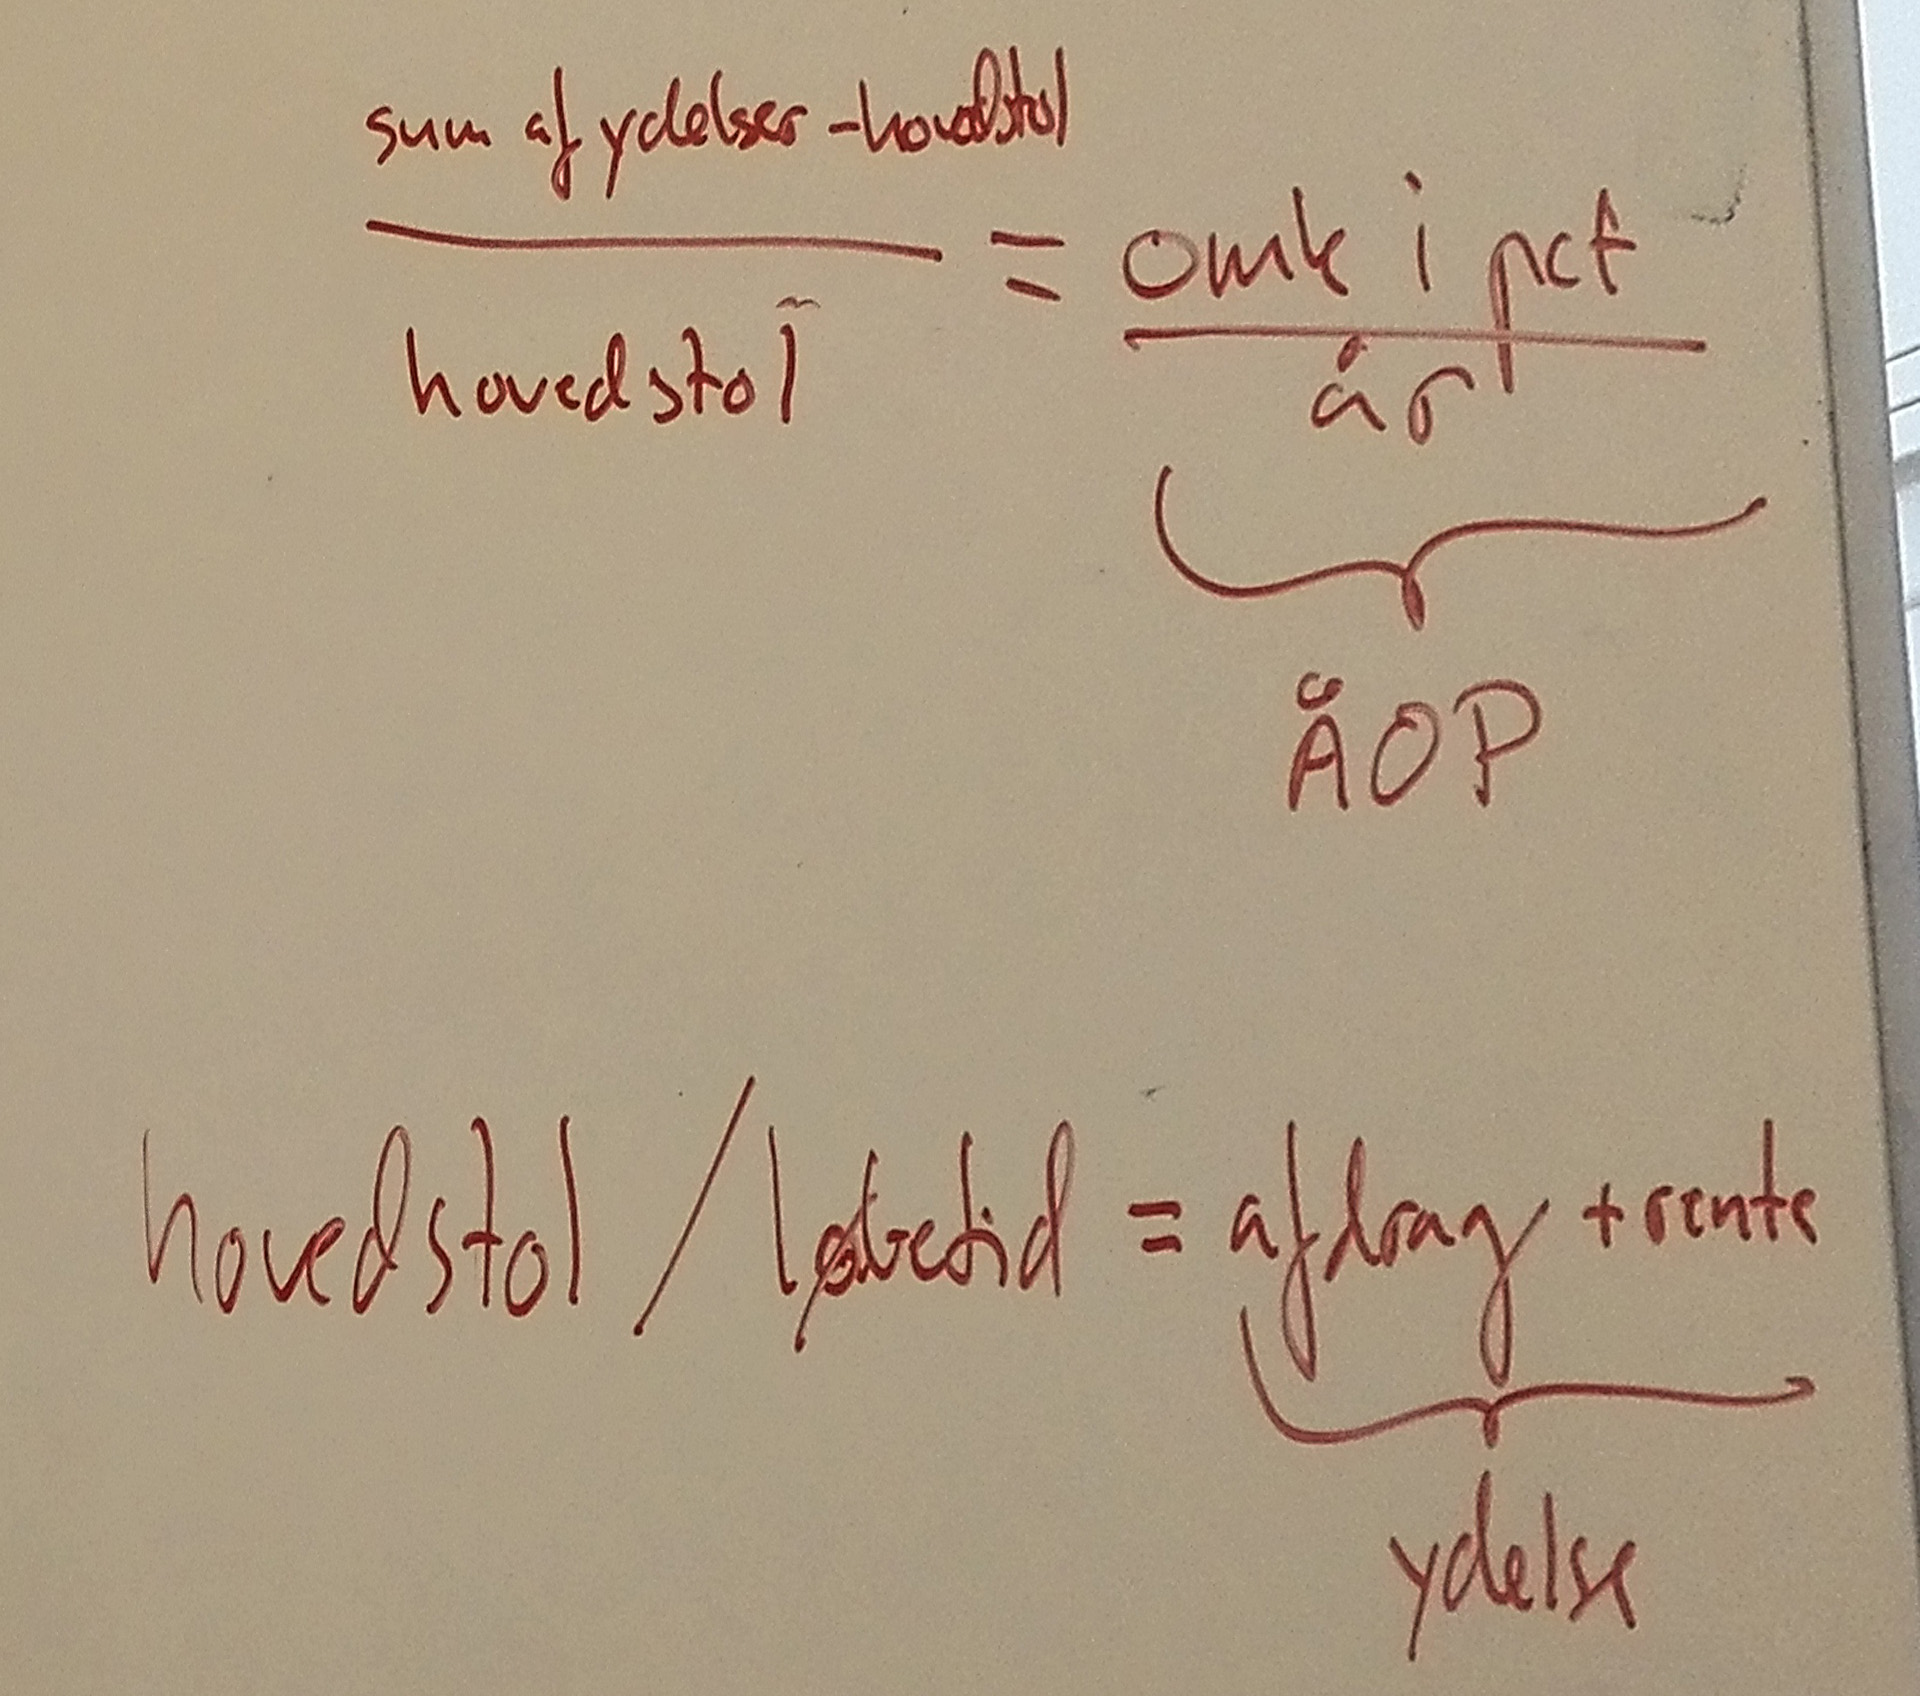 sum af ydelser - hovedstol
hovedstol
= omk i pct
år
ÅOP
hovedstol / løbetid = afdrag + rente
ydelse